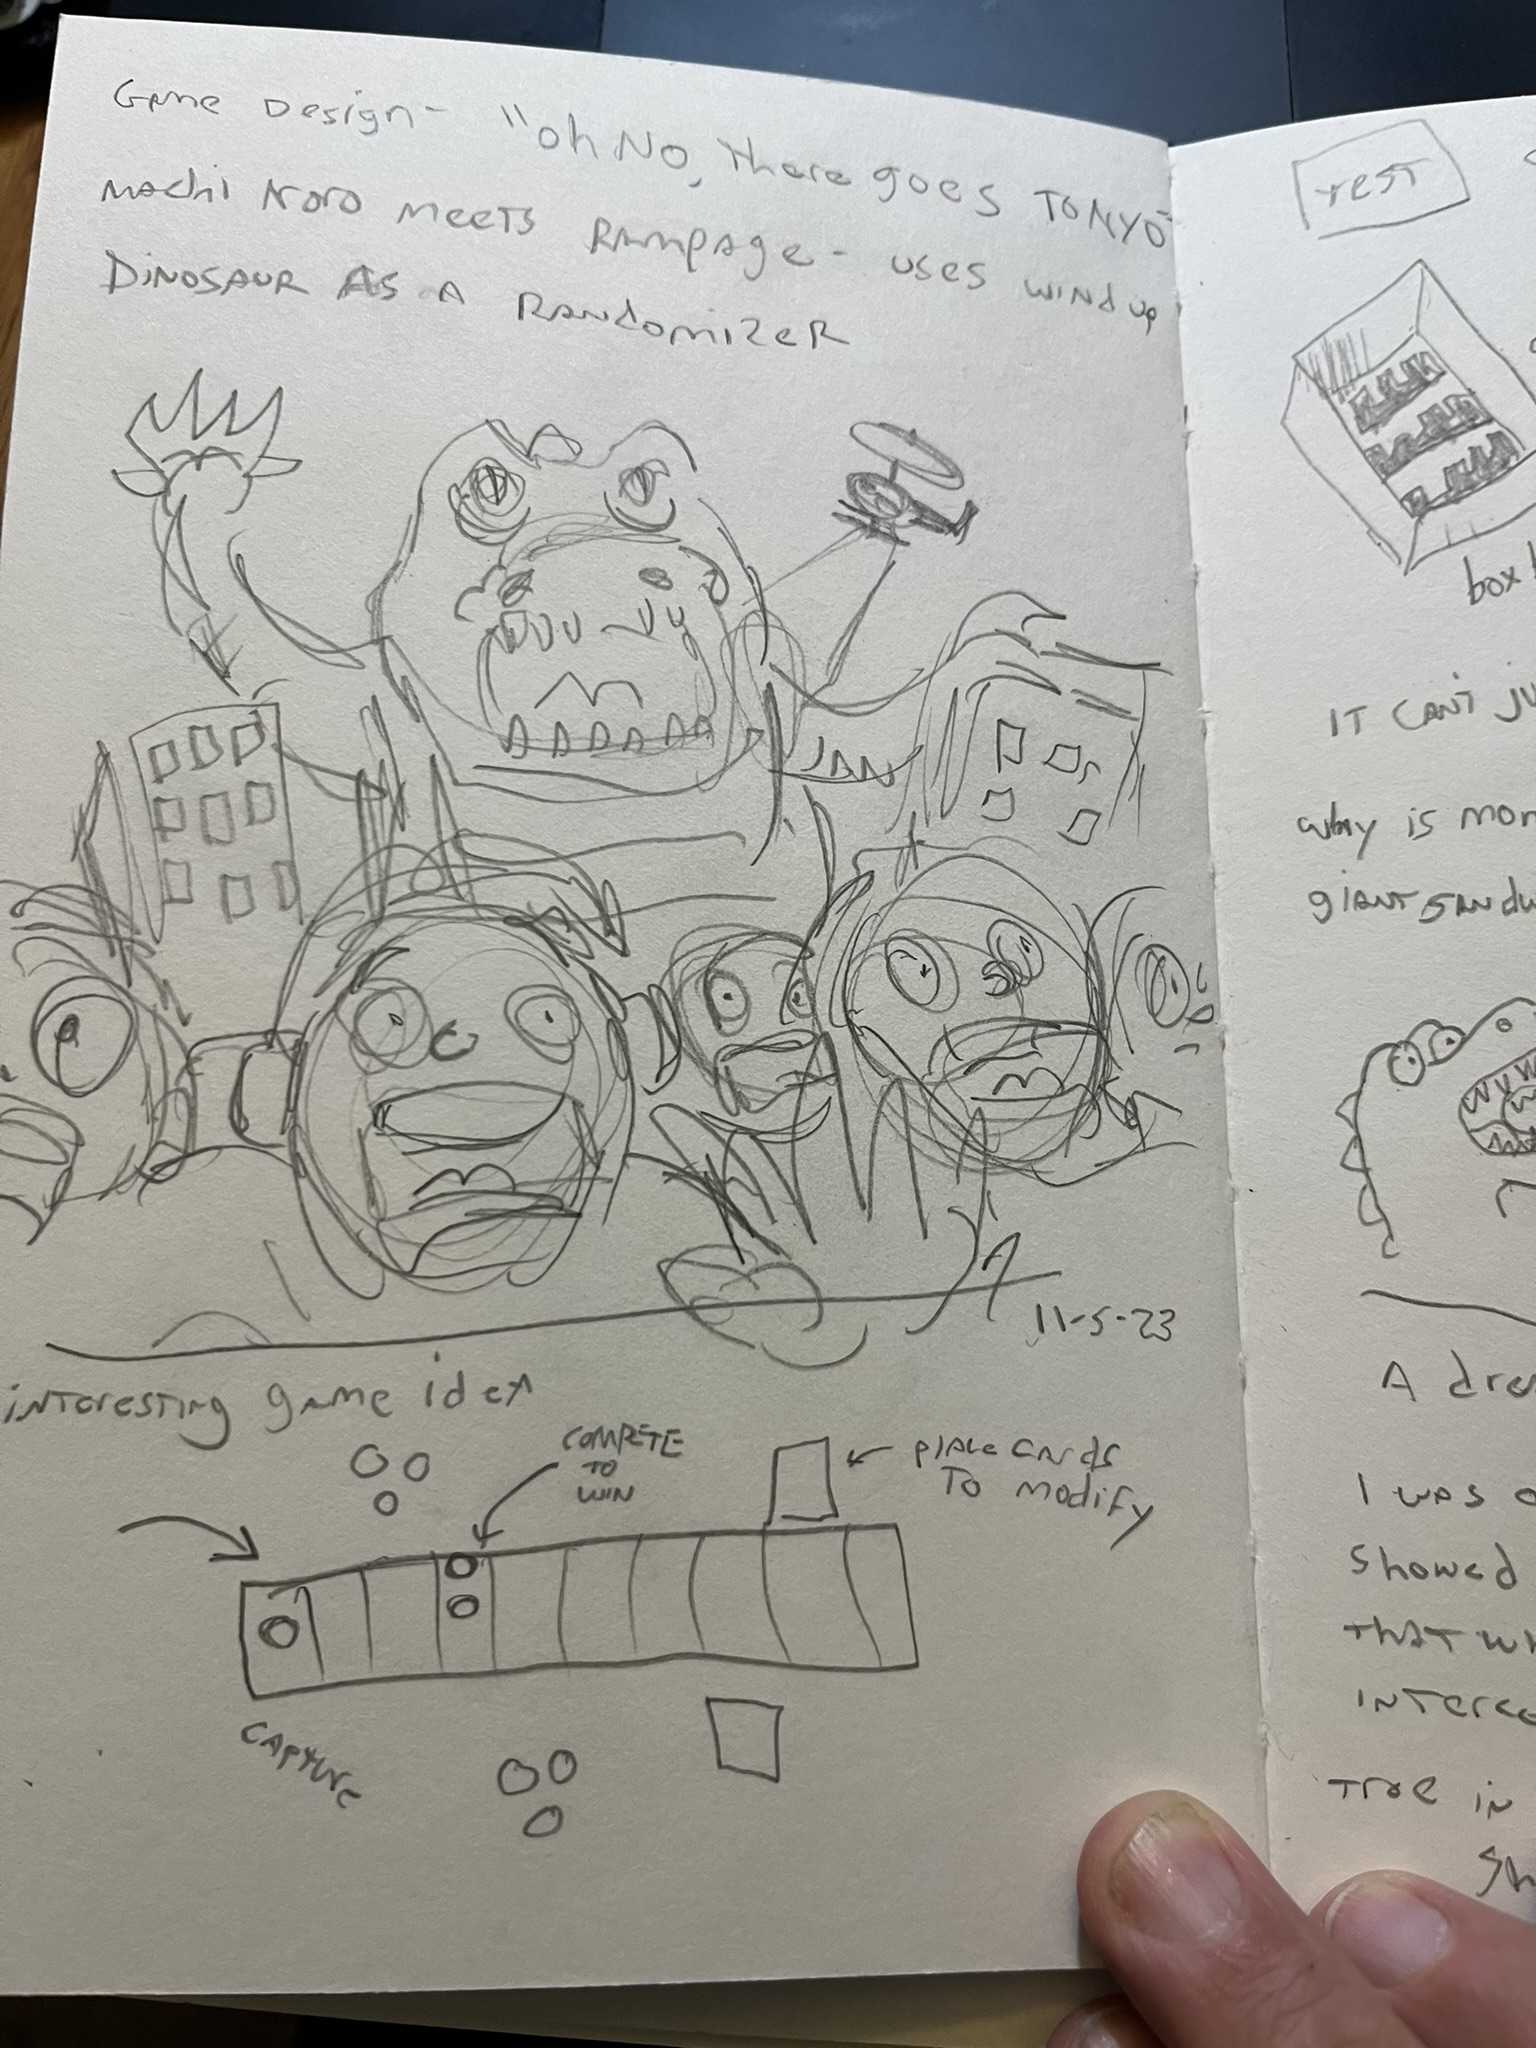 Game Design - "oh No, There goes TOKYO
Machi Koro Meets Rampage - uses wind up
Dinosaur As A Randomizer
11-5-23
interesting game idea
COMPETE
TO
WIN
place cards
To modify
CAPTURE
rest
box
IT CAN'T
why is
giant
A
I was
Showed
THAT
True in